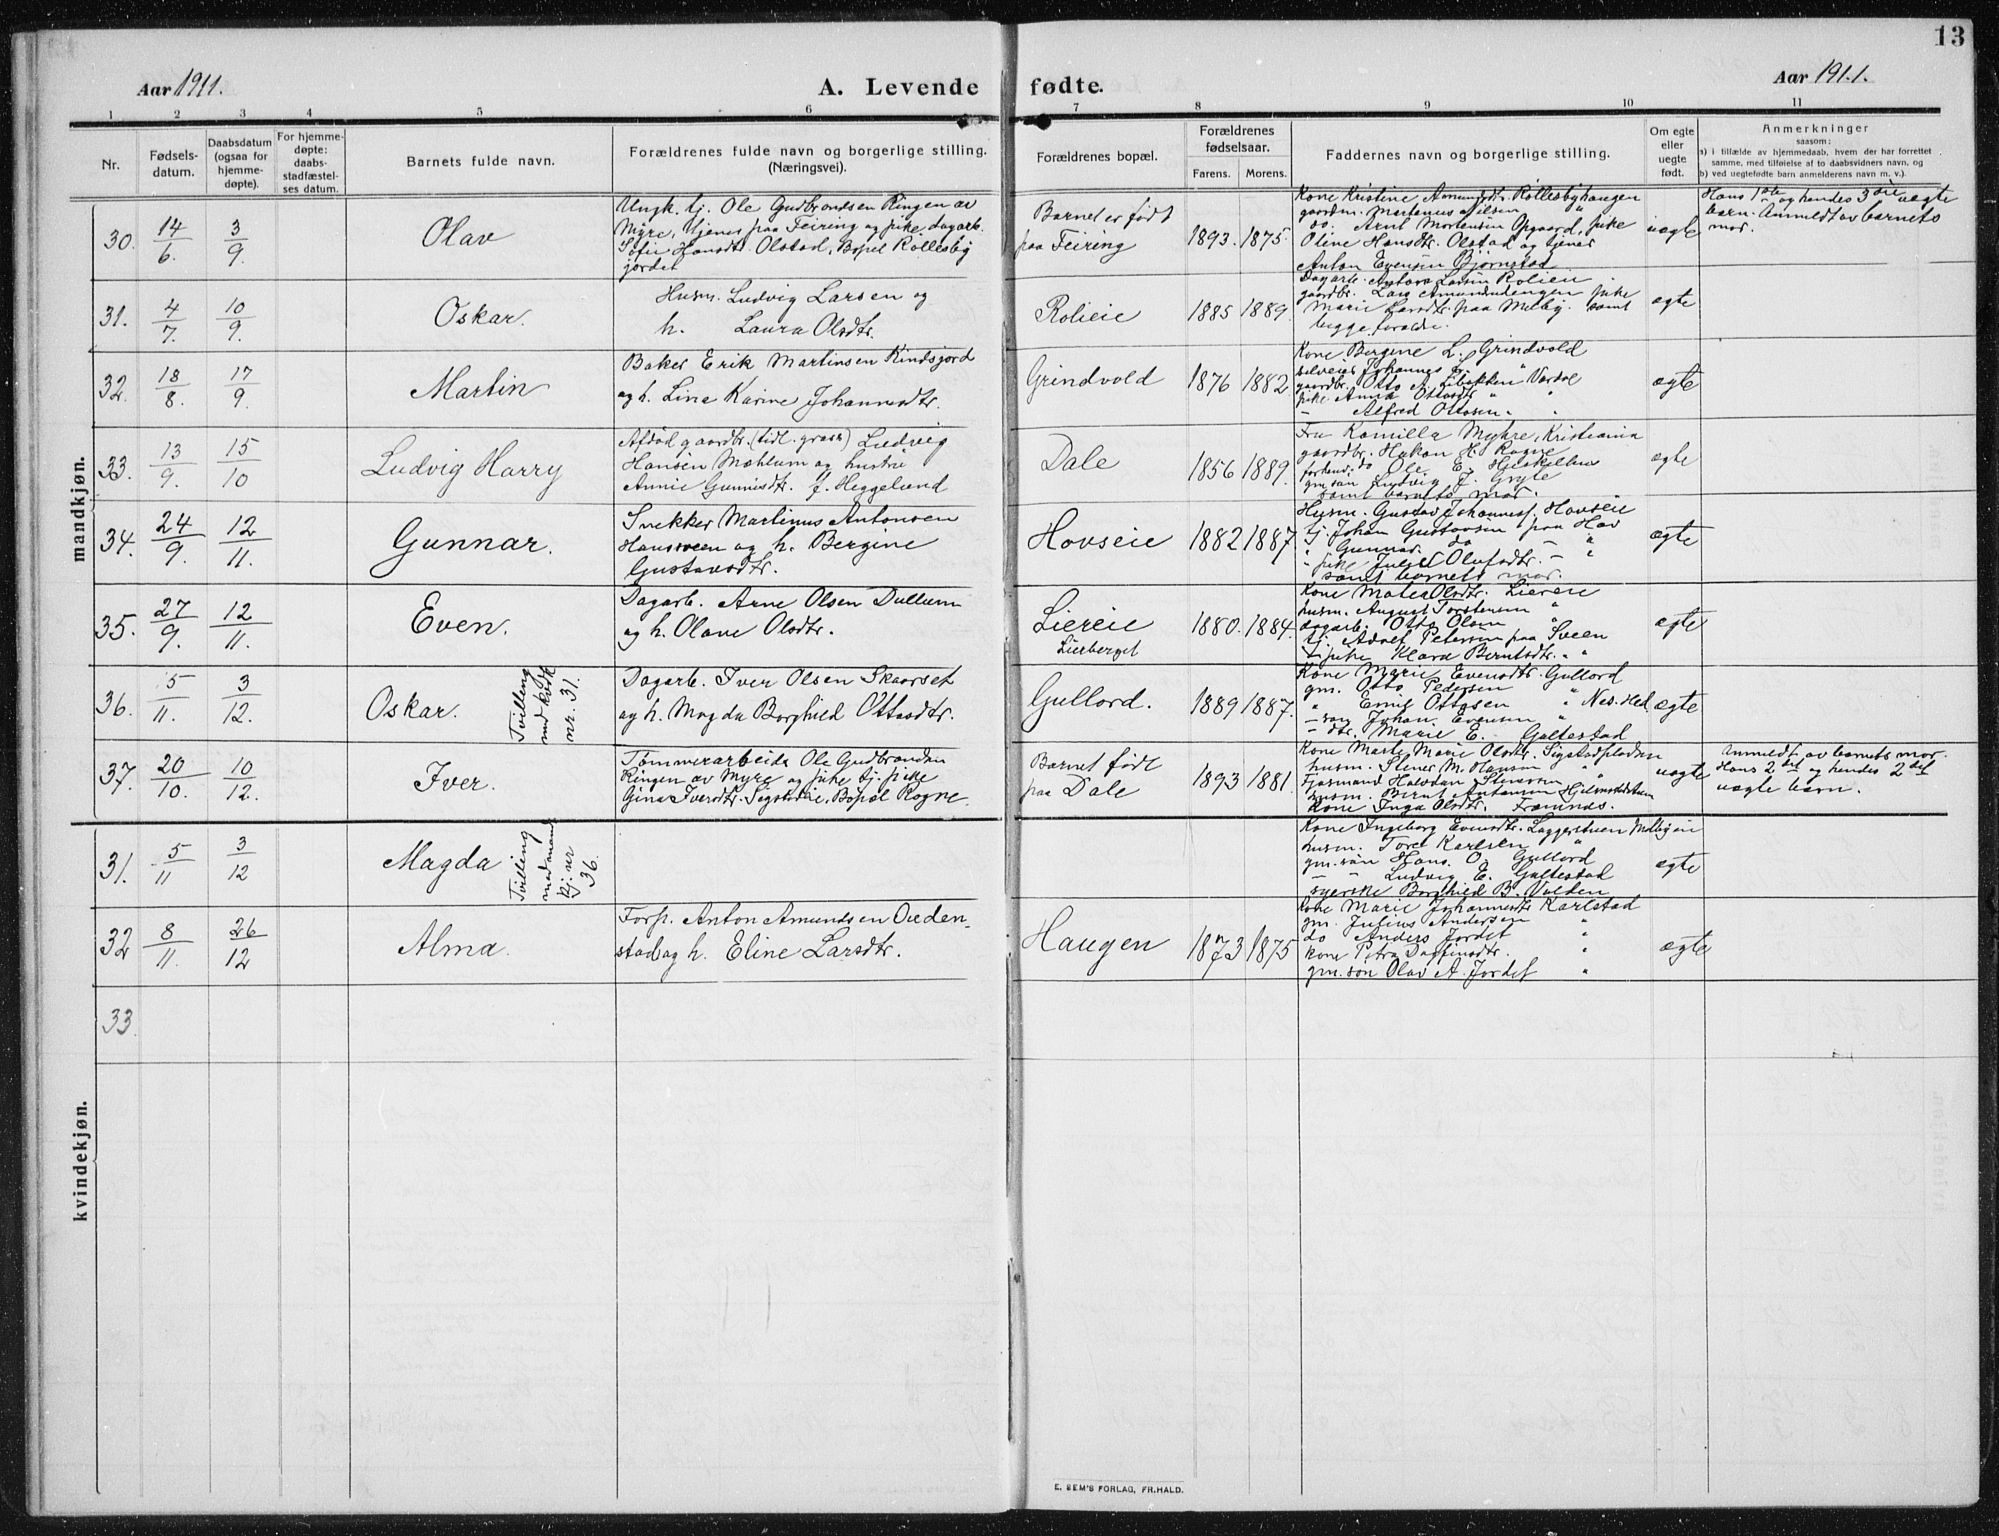 13
Aar 1911.
A. Levende fødte.
Aar 1911.
1 2 3 4 5 6 7 8 9 10 11
Nr.
Fødsels-
datum.
Daabsdatum
(ogsaa for
hjemme-
døpte).
For hjemme-
døpte:
daabs-
stadfæstel-
ses datum.
Barnets fulde navn.
Forældrenes fulde navn og borgerlige stilling.
(Næringsvei).
Forældrenes bopæl.
Forældrenes
fødselsaar.
Farens. Morens.
Faddernes navn og borgerlige stilling.
Om egte
eller
uegte
født.
Anmerkninger
saasom:
a) i tilfælde av hjemmedaab, hvem der har forrettet
samme, med tilføielse af to daabsvidners navn, og
b) ved uegtefødte barn anmelderens navn m. v.).
mandkjøn.
30. 14/6. 3/9. Olav
Ungk. tj. Ole Gudbrandsen Ringen av
Myre, tjener paa Feiring og pike, dagarb.
Sofie Hansdtr. Olstad, Bopel Rollesby
jordet
Barnet er født
paa Feiring
1893. 1875.
Kone Kristine Amundsdtr. Rollesbyhaugen
gaardm. Martinus Nilsen "
do. Arnt Mortensen Opgaard, pike
Oline Hansdtr. Olstad og tjener
Anton Evensen Bjørnstad
uegte
Hans 1ste og hendes 3die uegte
barn. Anmeldt av barnets
mor.
31. 4/7. 10/9. Oskar.
Husm. Ludvig Larsen og
h. Laura Olsdtr.
Rolieie
1885 1889.
Dagarb. Anton Larsen Rolieie
gaardbr. Lars Amundsdengen pike
Marie Larsdtr. paa Melby. samt
begge foraldre.
egte
32. 18/8. 17/9. Martin
Baker Erik Martinsen Kindsjord
og h. Lina Karine Johannesdtr.
Grindvold
1876 1882
Kone Bergine L. Grindvold
selveier Johannes Jr. "
gaardbr. Otto A. Libakken Vardal
pike Anna Ottosdtr " "
– Alfred Ottosen. "
egte
33. 13/9. 15/10 Ludvig Harry
Afdød gaardbr. (tidl. gross) Ludvig
Hansen Mæhlum og hustru
Annie Gunnesdtr. f. Heggelund
Dale
1856 1889.
Fru Kamilla Myhre, Kristiania
gaardbr. Hakon H. Rogne
forhenv. do Ole E. Hjeskelhus
gm. søn Ludvig J. Gryte
samt barnets mor.
egte
34. 24/9. 12/11. Gunnar.
Snekker Martinus Antonsen
Hansveen og h. Bergine
Gustavsdtr.
Hovseie
1882 1887
Husm. Gustav Johannesf. Hovseie
tj. Johan Gustavsen paa Hov
" Gunnar do – "
– pike Julie Olufsdtr. – "
samt barnets mor.
egte
35. 27/9. 12/11. Even.
Dagarb. Arne Olsen Dullum
og h. Olave Olsdtr.
Liereie
Lierberget
1880. 1884.
Kone Matea Olsdtr. Liereie
husm. August Torstensen "
dagarb. Otto Olsen "
tj. Adolf Petersen paa Sveen
tjpike Klara Berntsdtr. " "
egte
36. 5/11. 3/12. Oskar.
Tvilling
med kvdk
nr. 31.
Dagarb. Iver Olsen Skaarset
og h. Magda Borghild Ottosdtr.
Gullord.
1889 1887.
Kone Marie Evensdtr. Gullord
gm. Otto Pedersen "
" Emil Ottosen " Nes. Hed.
– søn Johan Evensen "
– dtr. Marie E. Galtestad
egte
37. 20/10. 10/12. Iver.
Tømmerarbeide Ole Gudbrandsn
Ringen av Myre og pike tj. pike
Gina Iversdtr. Sigstadeie, Bopel Rogne.
Barnet født
paa Dale
1893 1881.
Kone Marte Marie Olsdtr. Sigstadpladsen
husm. Stener M. Hansen "
Fjøsmand Halvdan Stenersen "
husm. Bernt Antonsen Hjelmstadstuen
Kone Inga Olsdtr. Framnes.
uegte
Anmeldt av barnets mor.
Hans 2det og hendes 2det
uegte barn.
kvindekjøn.
31. 5/11 3/12 Magda
Tvilling
med mand
kj. nr
36.
Kone Ingeborg Evensdtr. Laggerstuen Melbyeie
husm. Tore Karlsen "
gm. søn Hans O. Gullord
– " Ludvig E. Galtestad
syerske Borghild B. Volden
egte
32 8/11. 26/12 Alma.
Forp. Anton Amundsen Owden-
stad og h. Eline Larsdtr.
Haugen
1873 1875
Kone Marie Johannesdtr Karlstad
gm. Julius Andersen "
do Anders Jordet "
kone Petra Dagfinsdtr. "
gm. søn Olav A. Jordet "
egte
33.
E. SEM'S FORLAG, FR.HALD.